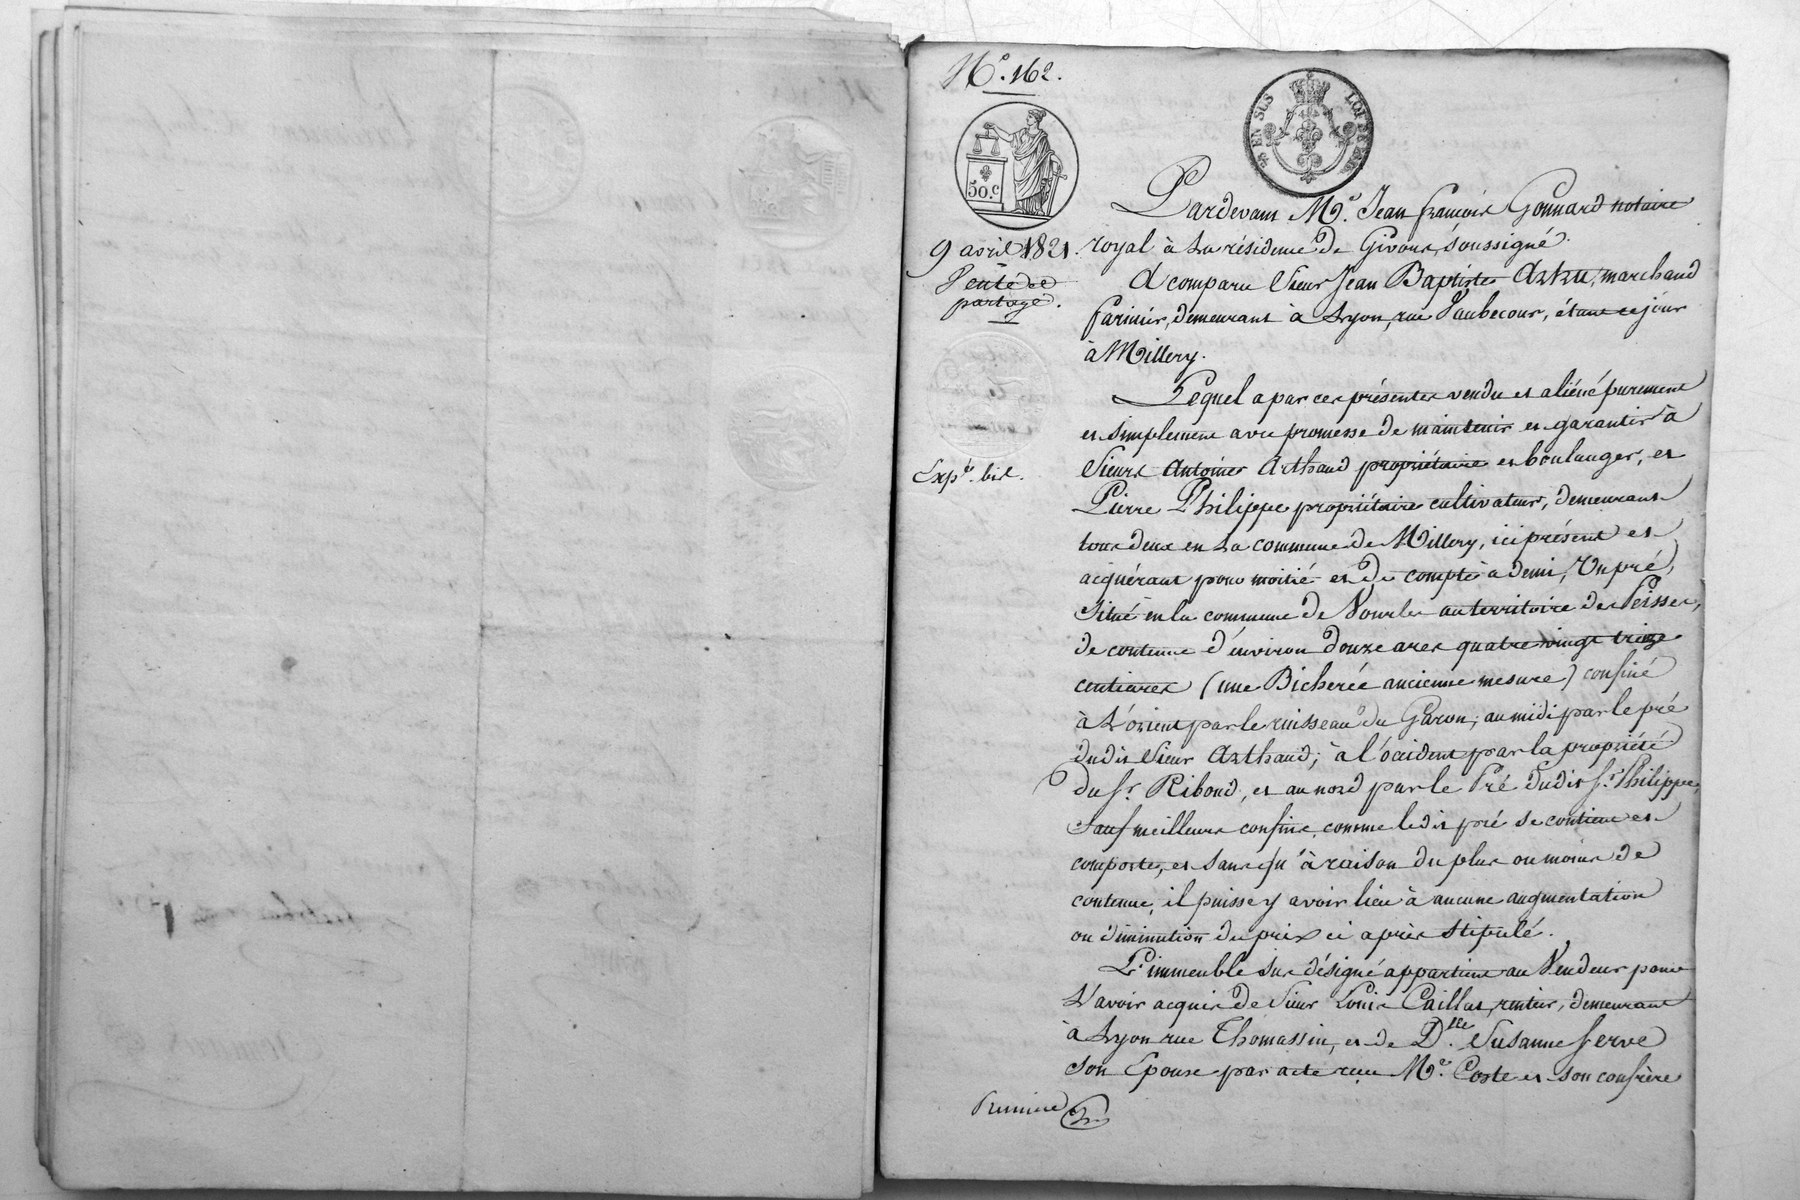 N.º 162.
EN SUS
LOI DE 1816
50.c
9 avril 1821.
Vente de
partage.
Expé. bis.
Pardevant Me. Jean françois Gonnard notaire
royal à la résidence de Givors, soussigné.
A comparu Sieur Jean Baptiste marchand
farinier, demeurant à Lyon, rue Vaubecour, étant ce jour
à Millery.
Lequel a par ces présentes vendu et aliéné purement
et simplement avec promesse de maintenir et garantir à
Sieurs Antoine Arthaud propriétaire et boulanger, et
Pierre Philippe propriétaire cultivateur, demeurant
tous deux en la commune de Millery, ici présent et
acquérant pour moitié et de compte à demi, Un pré,
situé en la commune de Vourles au territoire des Peisses,
de contenue d'environ douze ares quatre vingt treize
centiares (une Bicherée ancienne mesure) confiné
à l'orient par le ruisseau du Garon; au midi par le pré
dudit Sieur Arthaud; à l'occident par la propriété
du Sr. Riboud, et au nord par le Pré dudit Sr. Philippe,
sauf meilleurs confins, comme ledit pré se contient et
comporte, et sans qu'à raison du plus ou moins de
contenue, il puisse y avoir lieu à aucune augmentation
ou diminution du prix ci après stipulé.
L'immeuble sus désigné appartient au Vendeur pour
l'avoir acquis de Sieur Louis Caillat, rentier, demeurant
à Lyon rue Thomassin, et de Dlle. Susanne Serve
son Epouse par acte reçu Me. Coste et son confrère